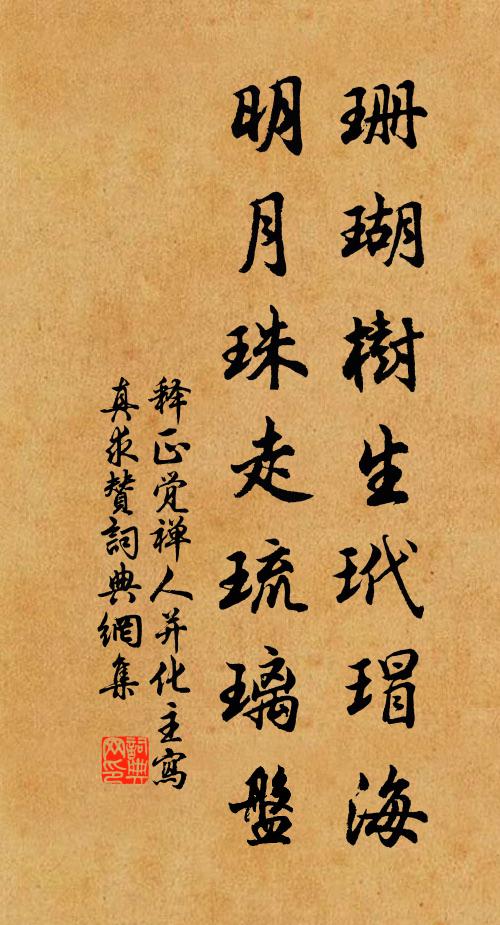 珊瑚樹生玳瑁海
明月珠走琉璃盤
释正觉禅人并化主寫
真求赞詞典網集
詞典网印